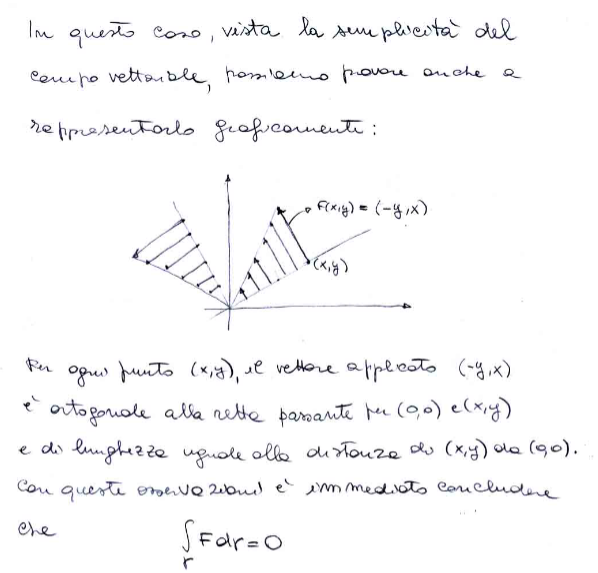 In questo caso, vista la semplicità del
campo vettoriale, possiamo provare anche a
rappresentarlo graficamente:
F(x,y) = (-y,x)
(x,y)
Per ogni punto (x,y), il vettore applicato (-y,x)
è ortogonale alla retta passante per (0,0) e (x,y)
e di lunghezza uguale alla distanza di (x,y) da (0,0).
Con queste osservazioni è immediato concludere
che ∫r F dr = 0